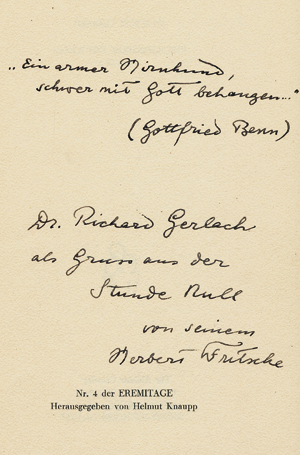 „Ein armer Hirnhund,
schwer mit Gott behangen..."
(Gottfried Benn)
Dr. Richard Gerlach
als Gruss aus der
Stunde Null
von seinem
Herbert Fritsche
Nr. 4 der EREMITAGE
Herausgegeben von Helmut Knaupp